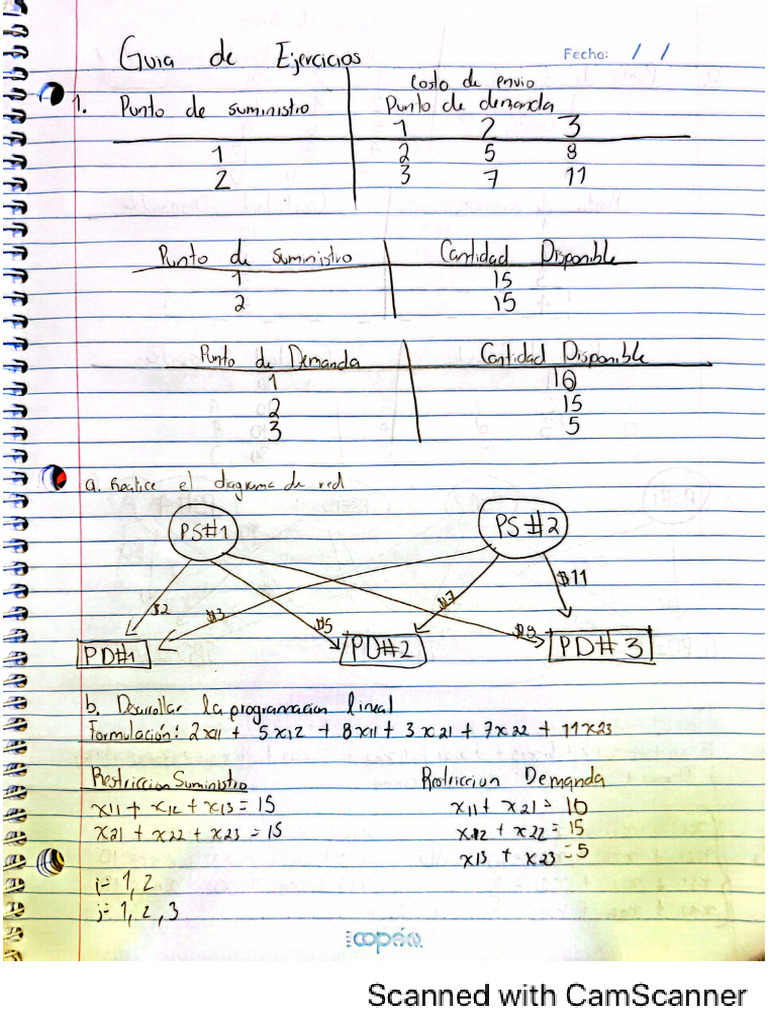 Guia de Ejercicios
Fecha: / /
Costo de envio
1. Punto de suministro Punto de demanda
1 2 3
1 2 5 8
2 3 7 11
Punto de suministro Cantidad Disponible
1 15
2 15
Punto de Demanda Cantidad Disponible
1 10
2 15
3 5
a. Realice el diagrama de red
PS#1 PS#2
$2 $3 $5 $7 $8 $11
PD#1 PD#2 PD#3
b. Desarrollar la programacion lineal
Formulación: 2x11 + 5x12 + 8x11 + 3x21 + 7x22 + 11x23
Restriccion Suministro Restriccion Demanda
x11 + x12 + x13 = 15 x11 + x21 = 10
x21 + x22 + x23 = 15 x12 + x22 = 15
x13 + x23 = 5
i= 1, 2
j= 1, 2, 3
copán
Scanned with CamScanner